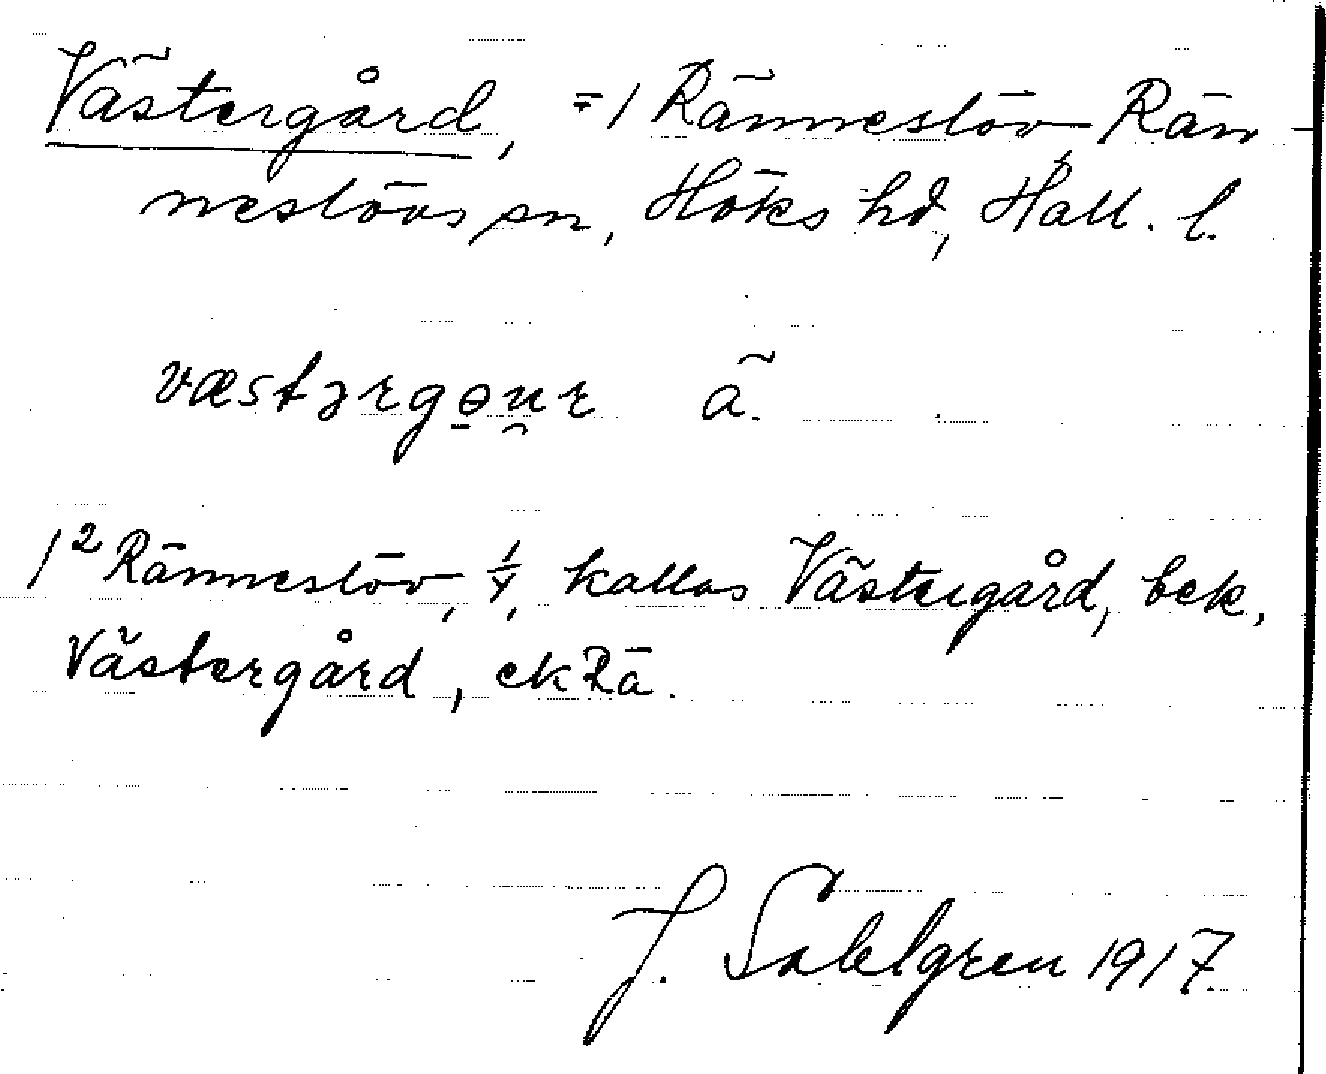 Västergård, = 1 Ränneslöv Rän-
neslövs sn, Höks hd, Hall. l.
væstərgo̱u̯r ä.
1² Ränneslöv, 1/4, kallas Västergård, bek.
Västergård, ekRä.
J. Sahlgren 1917.